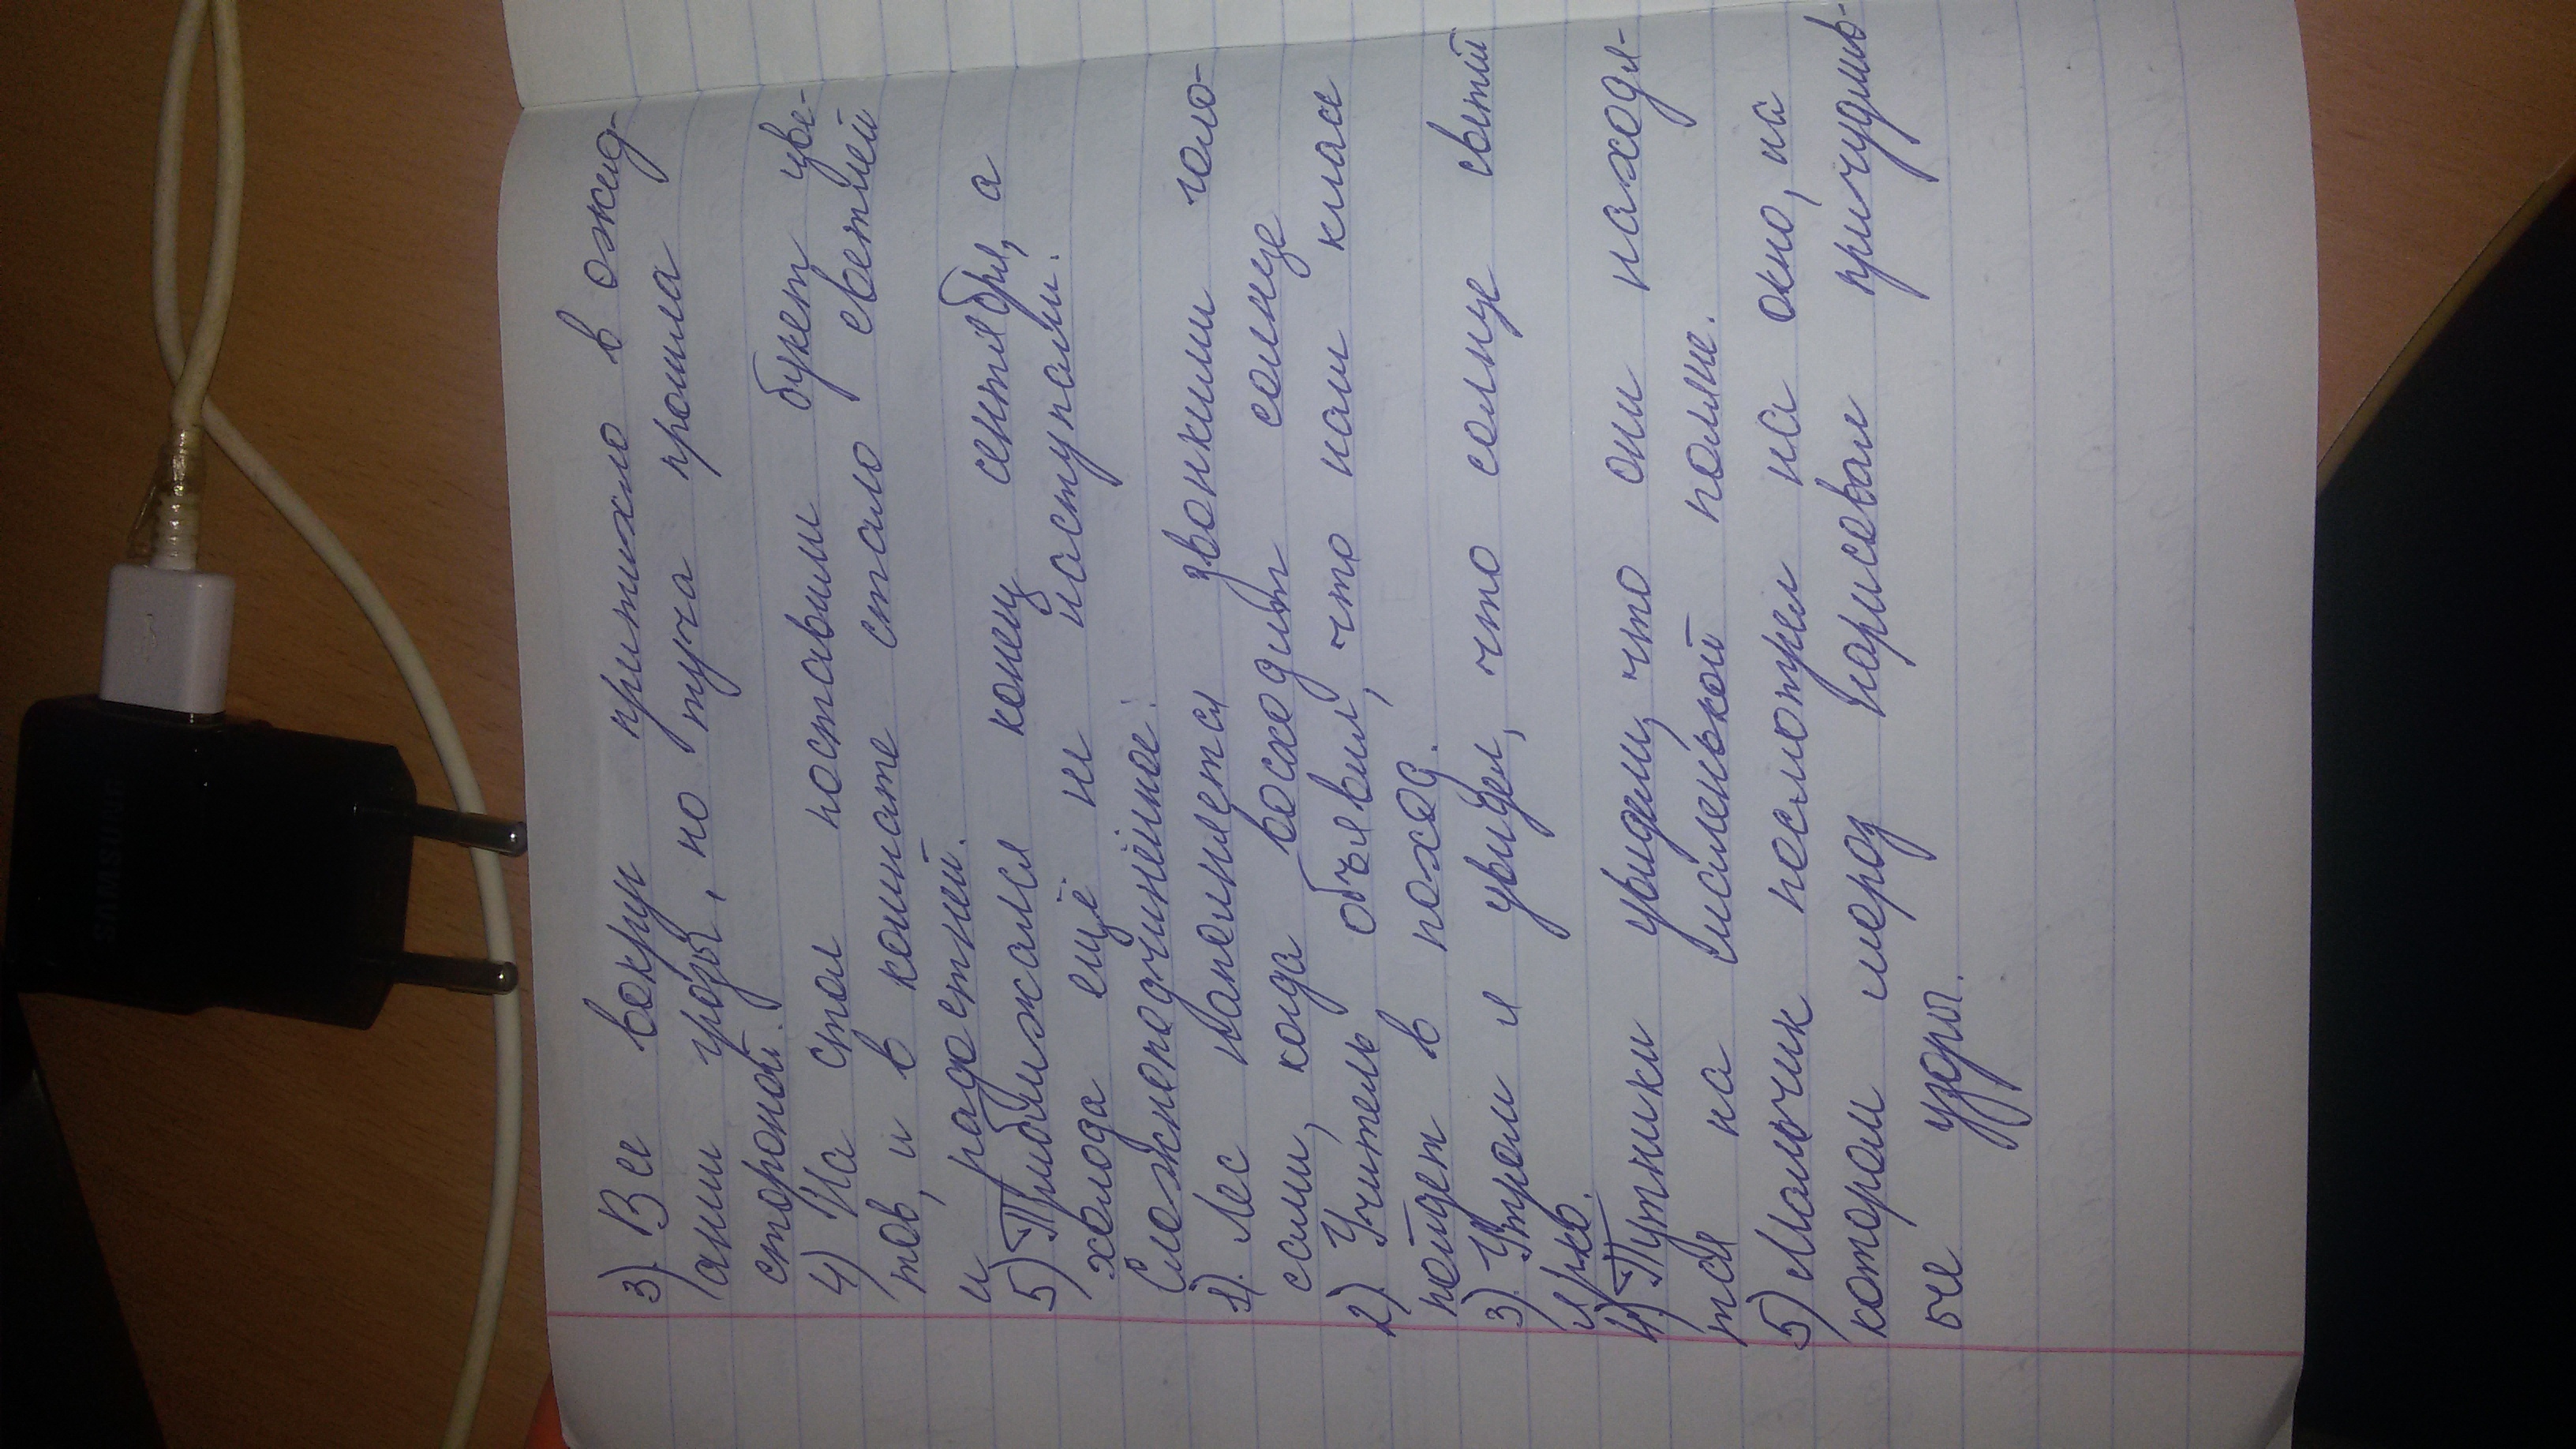 3). Все вокруг притихло в ожид-
ании грозы, но туча прошла
стороной.
4) На стол поставили букет цве-
тов, и в комнате стало светлей
и радостней.
5) Приближался конец сентября, а
холода ещё не наступали.
Сложноподчинённое:
1). Лес наполняется звонкими голо-
сами, когда восходит солнце
2). Учитель объявил, что наш класс
пойдет в поход.
3). Утром я увидел, что солнце светит
ярко.
4) Путники увидели, что они находя-
тся на маленькой поляне.
5) Мальчик посмотрел на окно, на
котором мороз нарисовал причудлив-
ые узоры.
SAMSUNG